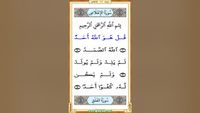 سُورَةُ الإِخْلَاصِ
بِسْمِ اللَّهِ الرَّحْمَٰنِ الرَّحِيمِ
قُلْ هُوَ اللَّهُ أَحَدٌ ۝
اللَّهُ الصَّمَدُ ۝
لَمْ يَلِدْ وَلَمْ يُولَدْ
۝ وَلَمْ يَكُن
لَّهُ كُفُوًا أَحَدٌ ۝
سُورَةُ الفَلَقِ